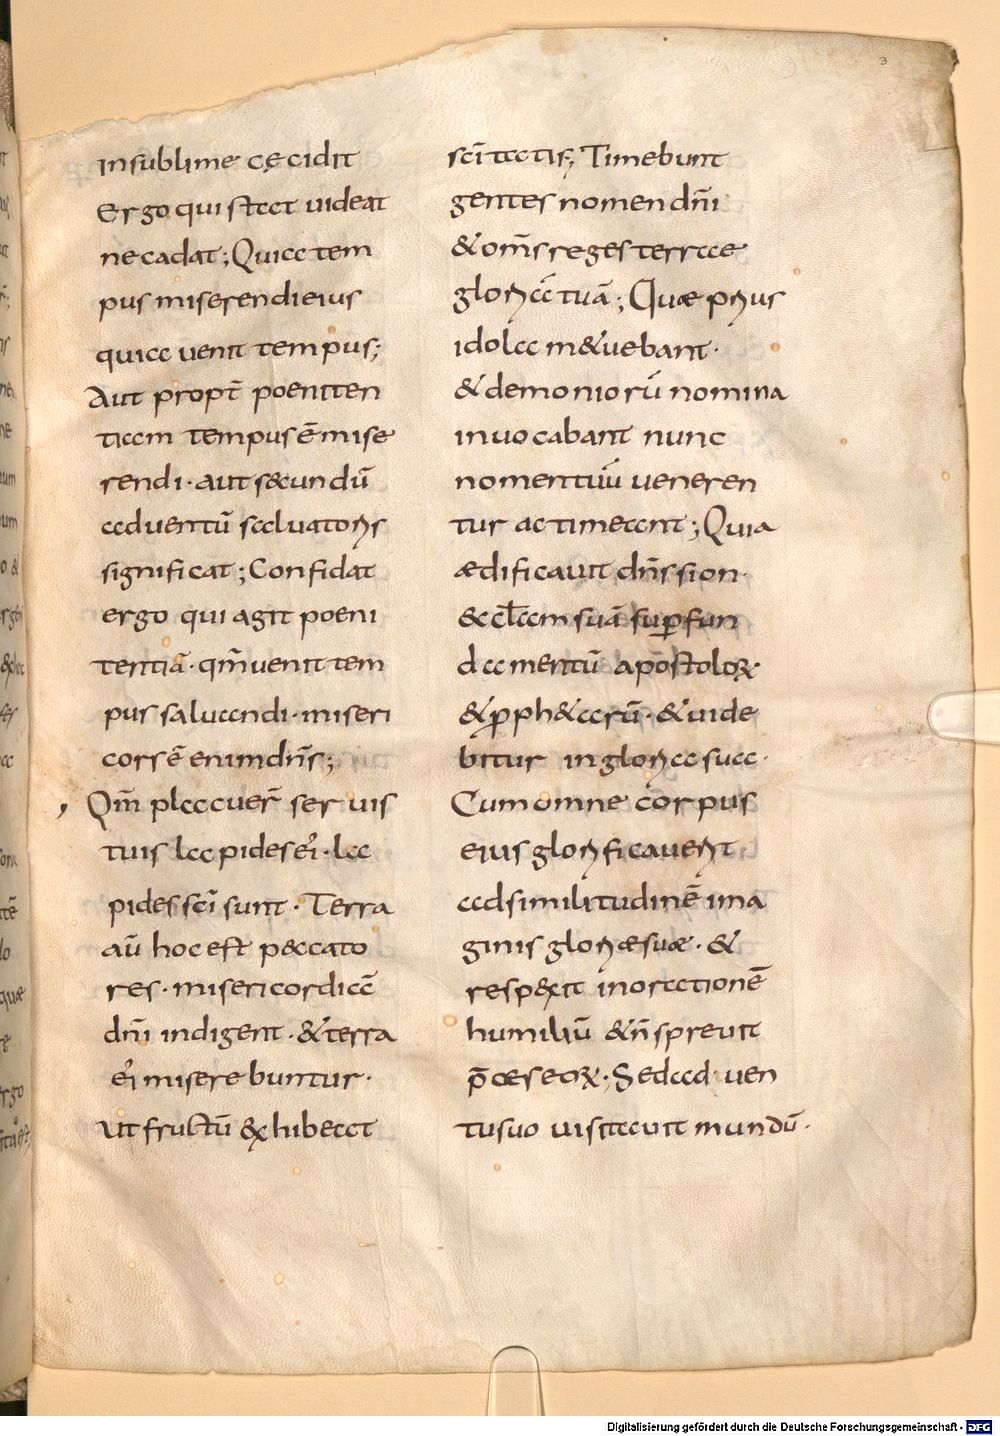 3
insublime cęcidit
Ergo qui stetit uideat
ne cadat; Quia tem
pus miserendi eius
quia uenit tempus;
Aut propt̄ poeniten
tiam tempus ē mise
rendi · aut secundū
aduentū saluatoris
significat; Confidat
ergo qui agit poeni
tentiā · qm̄ uenit tem
pus saluandi · miseri
cors ē enim dn̄s;
Qm̄ placuer̄ seruis
tuis lapides ei᷒ · la
pides sc̄i sunt · Terra
aū hoc est peccato
res · misericordiā
dn̄i indigent · & terra
ei᷒ miserebuntur ·
ut fructū exhibeat
sc̄itatis; Timebunt
gentes nomen dn̄i
& om̄s reges terrae
gloriā tuā; Quæ prius
idola metuebant ·
& demoniorū nomina
inuocabant nunc
nomen tuū ueneren
tur ac timeant; Quia
ædificauit dn̄s sion ·
& eccl̄am suā sup̱ fun
damentū apostoloꝝ
& ꝓphetarū · & uide
bitur in gloria sua ·
Cum omne corpus
eius glorificauerit
ad similitudinē ima
ginis gloriæ suæ · &
respexit in orationē
humiliū & n̄ spreuit
p̄ces eoꝝ · Sed aduen
tu suo uisitauit mundū ·
Digitalisierung gefördert durch die Deutsche Forschungsgemeinschaft - DFG